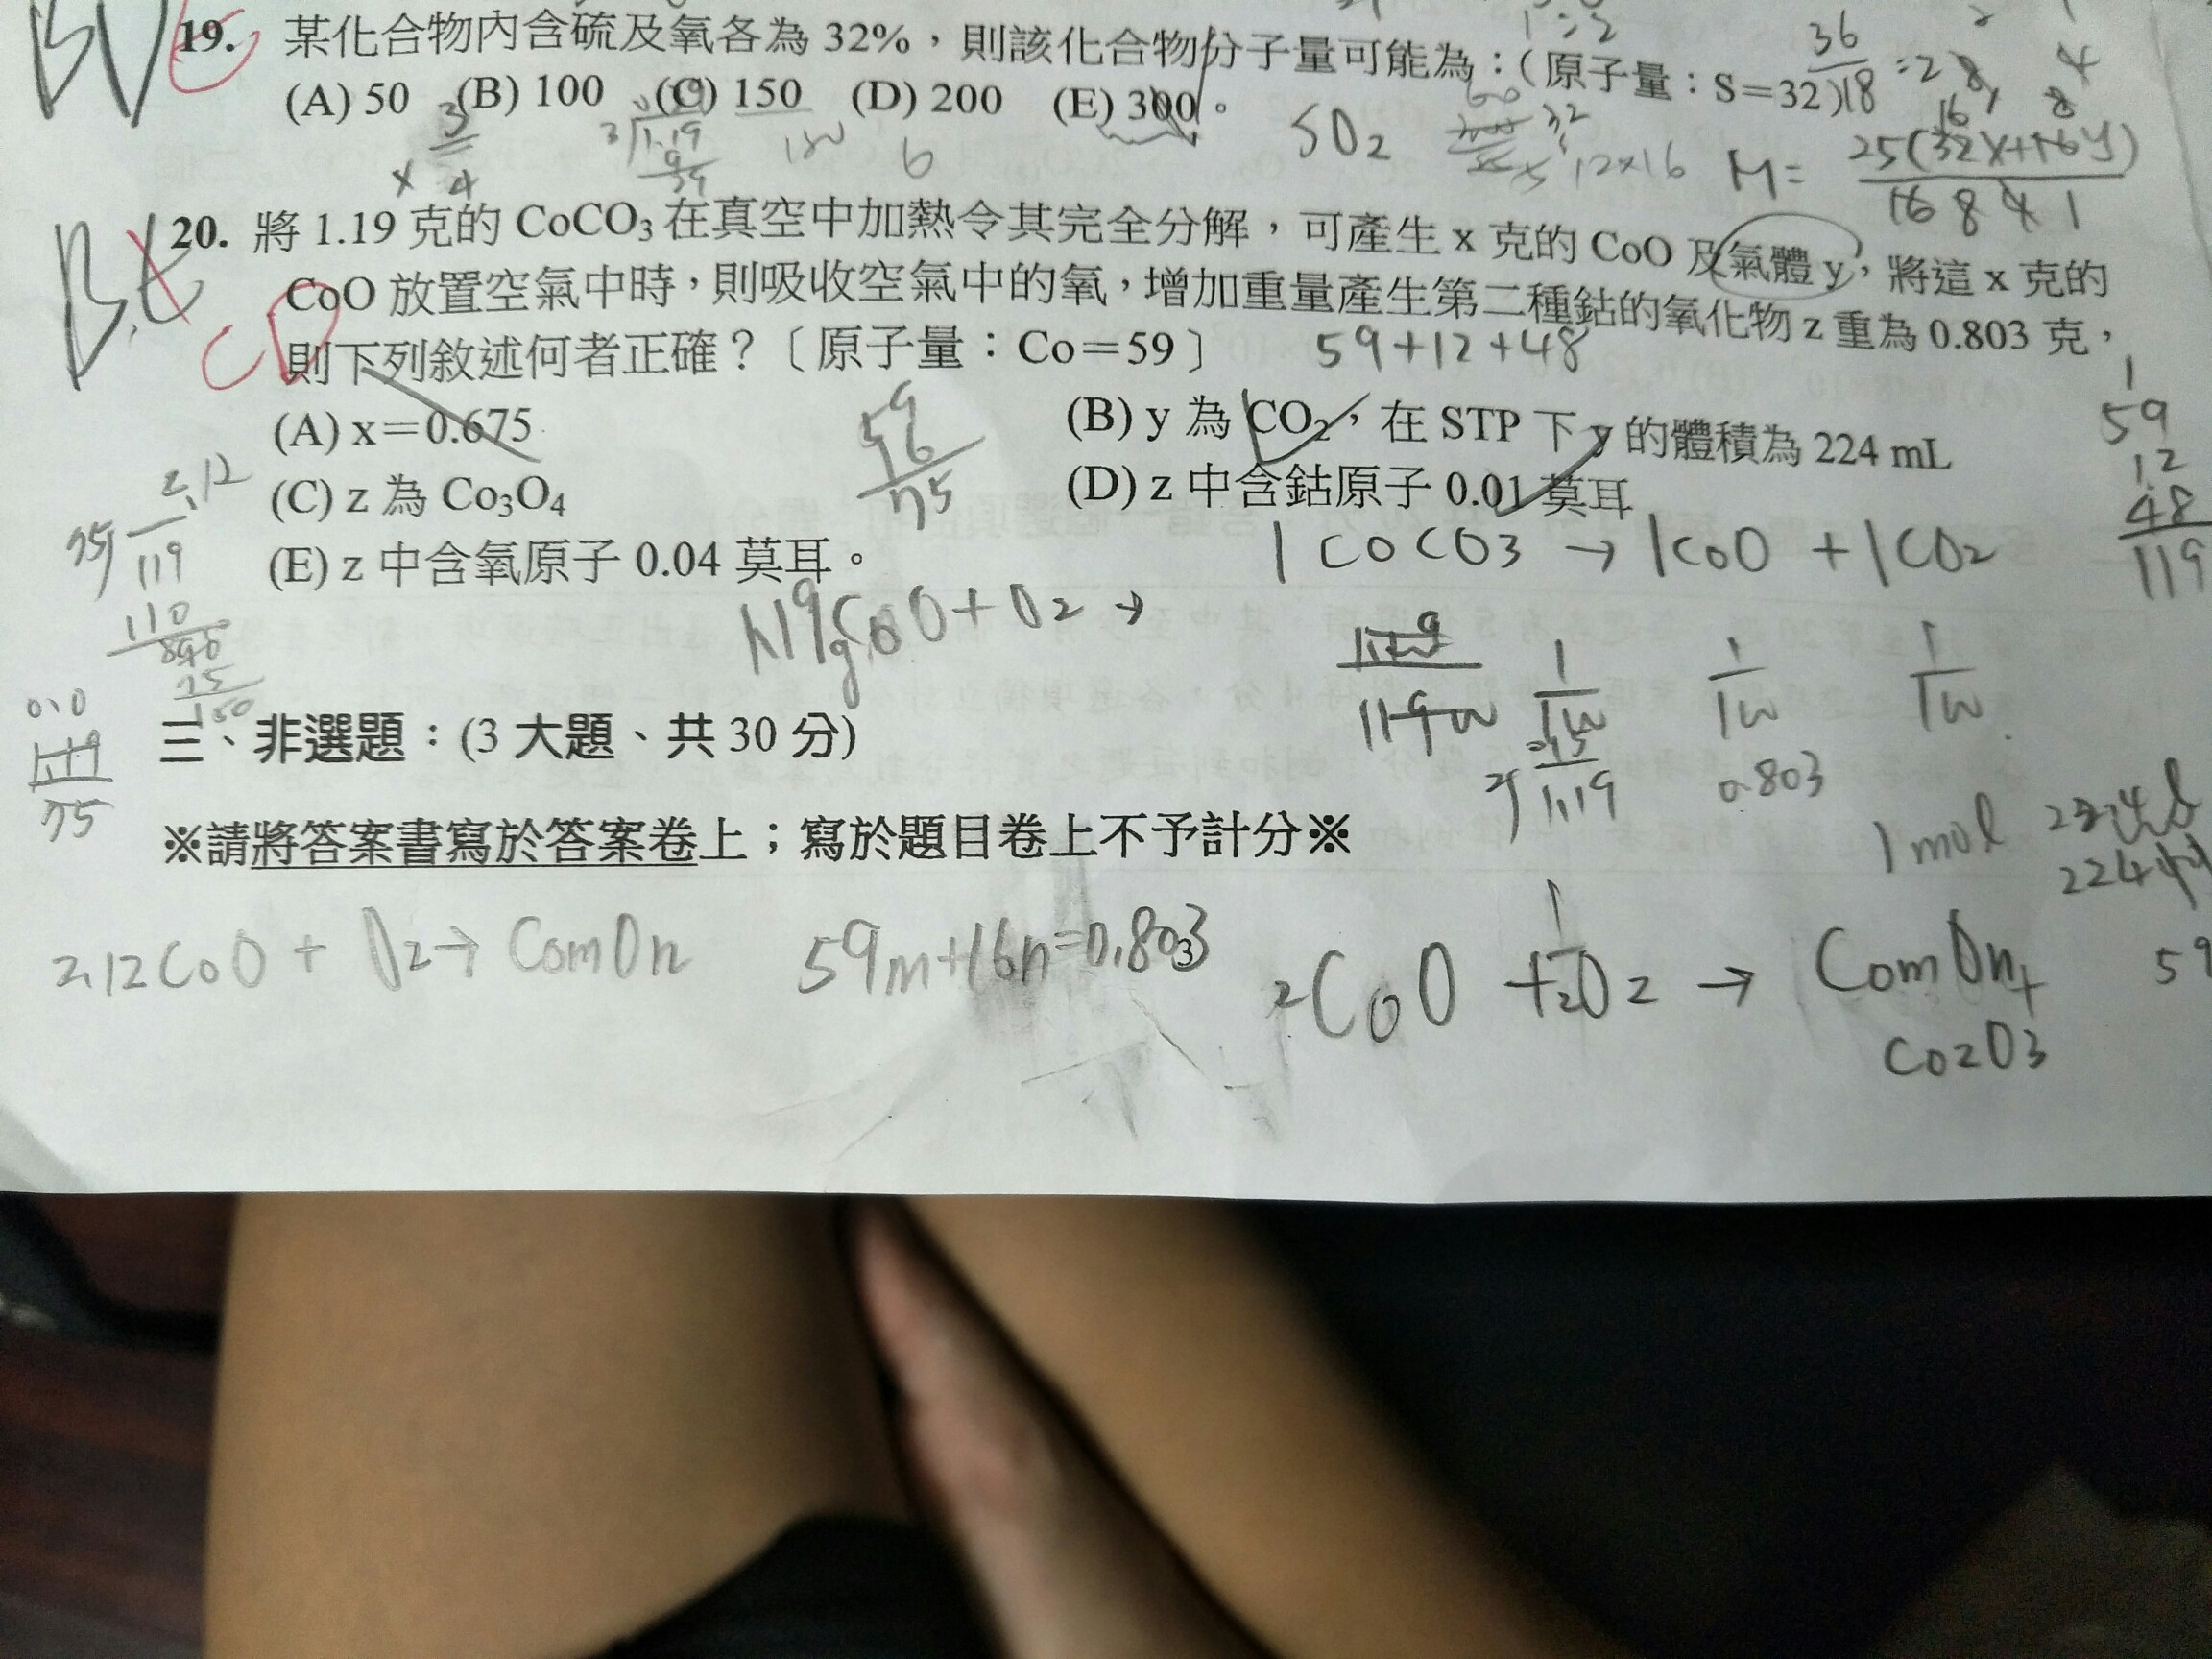 19. 某化合物內含硫及氧各為 32%，則該化合物分子量可能為：(原子量：S=32)
(A) 50 (B) 100 (C) 150 (D) 200 (E) 300。
SO2
12×16
M= 25(32x+16y)
36
18 =2
20. 將 1.19 克的 CoCO3 在真空中加熱令其完全分解，可產生 x 克的 CoO 及氣體 y，將這 x 克的
CoO 放置空氣中時，則吸收空氣中的氧，增加重量產生第二種鈷的氧化物 z 重為 0.803 克，
則下列敘述何者正確？〔原子量：Co=59〕
59+12+48
(A) x=0.675
(B) y 為 CO2，在 STP 下 y 的體積為 224 mL
(C) z 為 Co3O4
(D) z 中含鈷原子 0.01 莫耳
(E) z 中含氧原子 0.04 莫耳。
59
12
48
119
1 CoCO3 → 1CoO + 1CO2
CoO + O2 →
0.803
三、非選題：(3 大題、共 30 分)
※請將答案書寫於答案卷上；寫於題目卷上不予計分※
1 mol
2.12CoO + O2 → ComOn
59m+16n=0.803
2CoO + 1/2O2 → ComOn
Co2O3